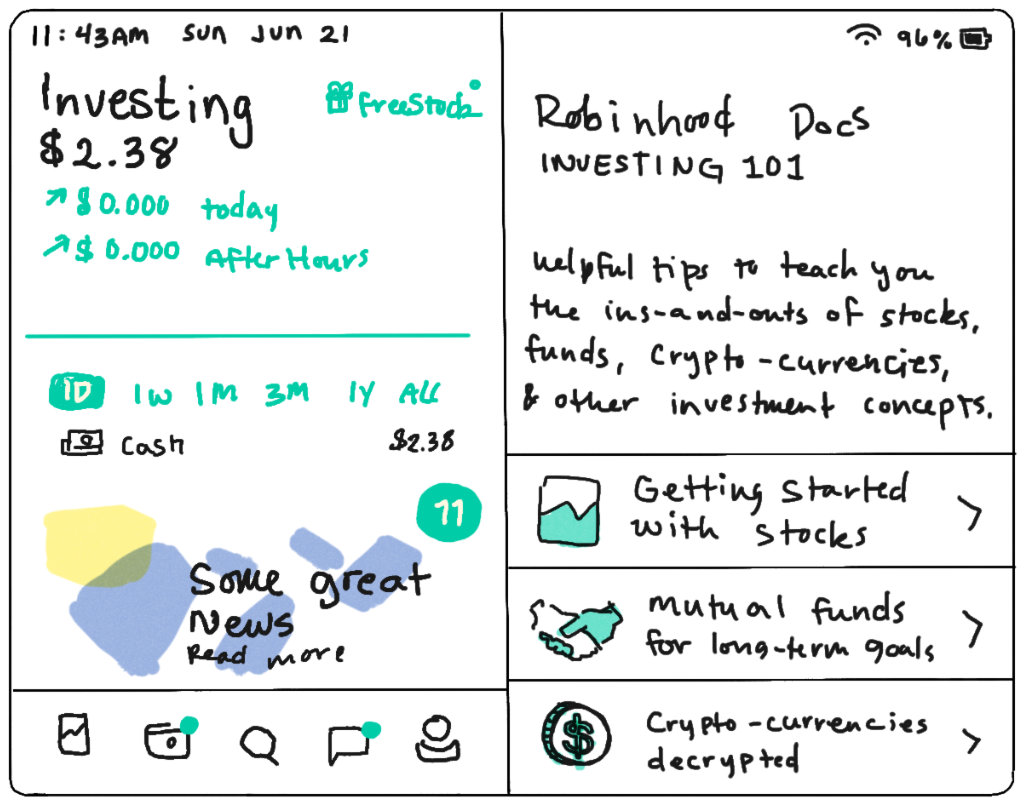 11:43AM Sun Jun 21
96%
Investing
FreeStock
$2.38
$0.000 today
$0.000 After Hours
1D 1W 1M 3M 1Y ALL
Cash $2.38
11
Some great
News
Read more
Robinhood Docs
INVESTING 101
Helpful tips to teach you
the ins-and-outs of stocks,
funds, Crypto-currencies,
& other investment concepts.
Getting Started
with stocks
Mutual funds
for long-term goals
$
Crypto-currencies
decrypted